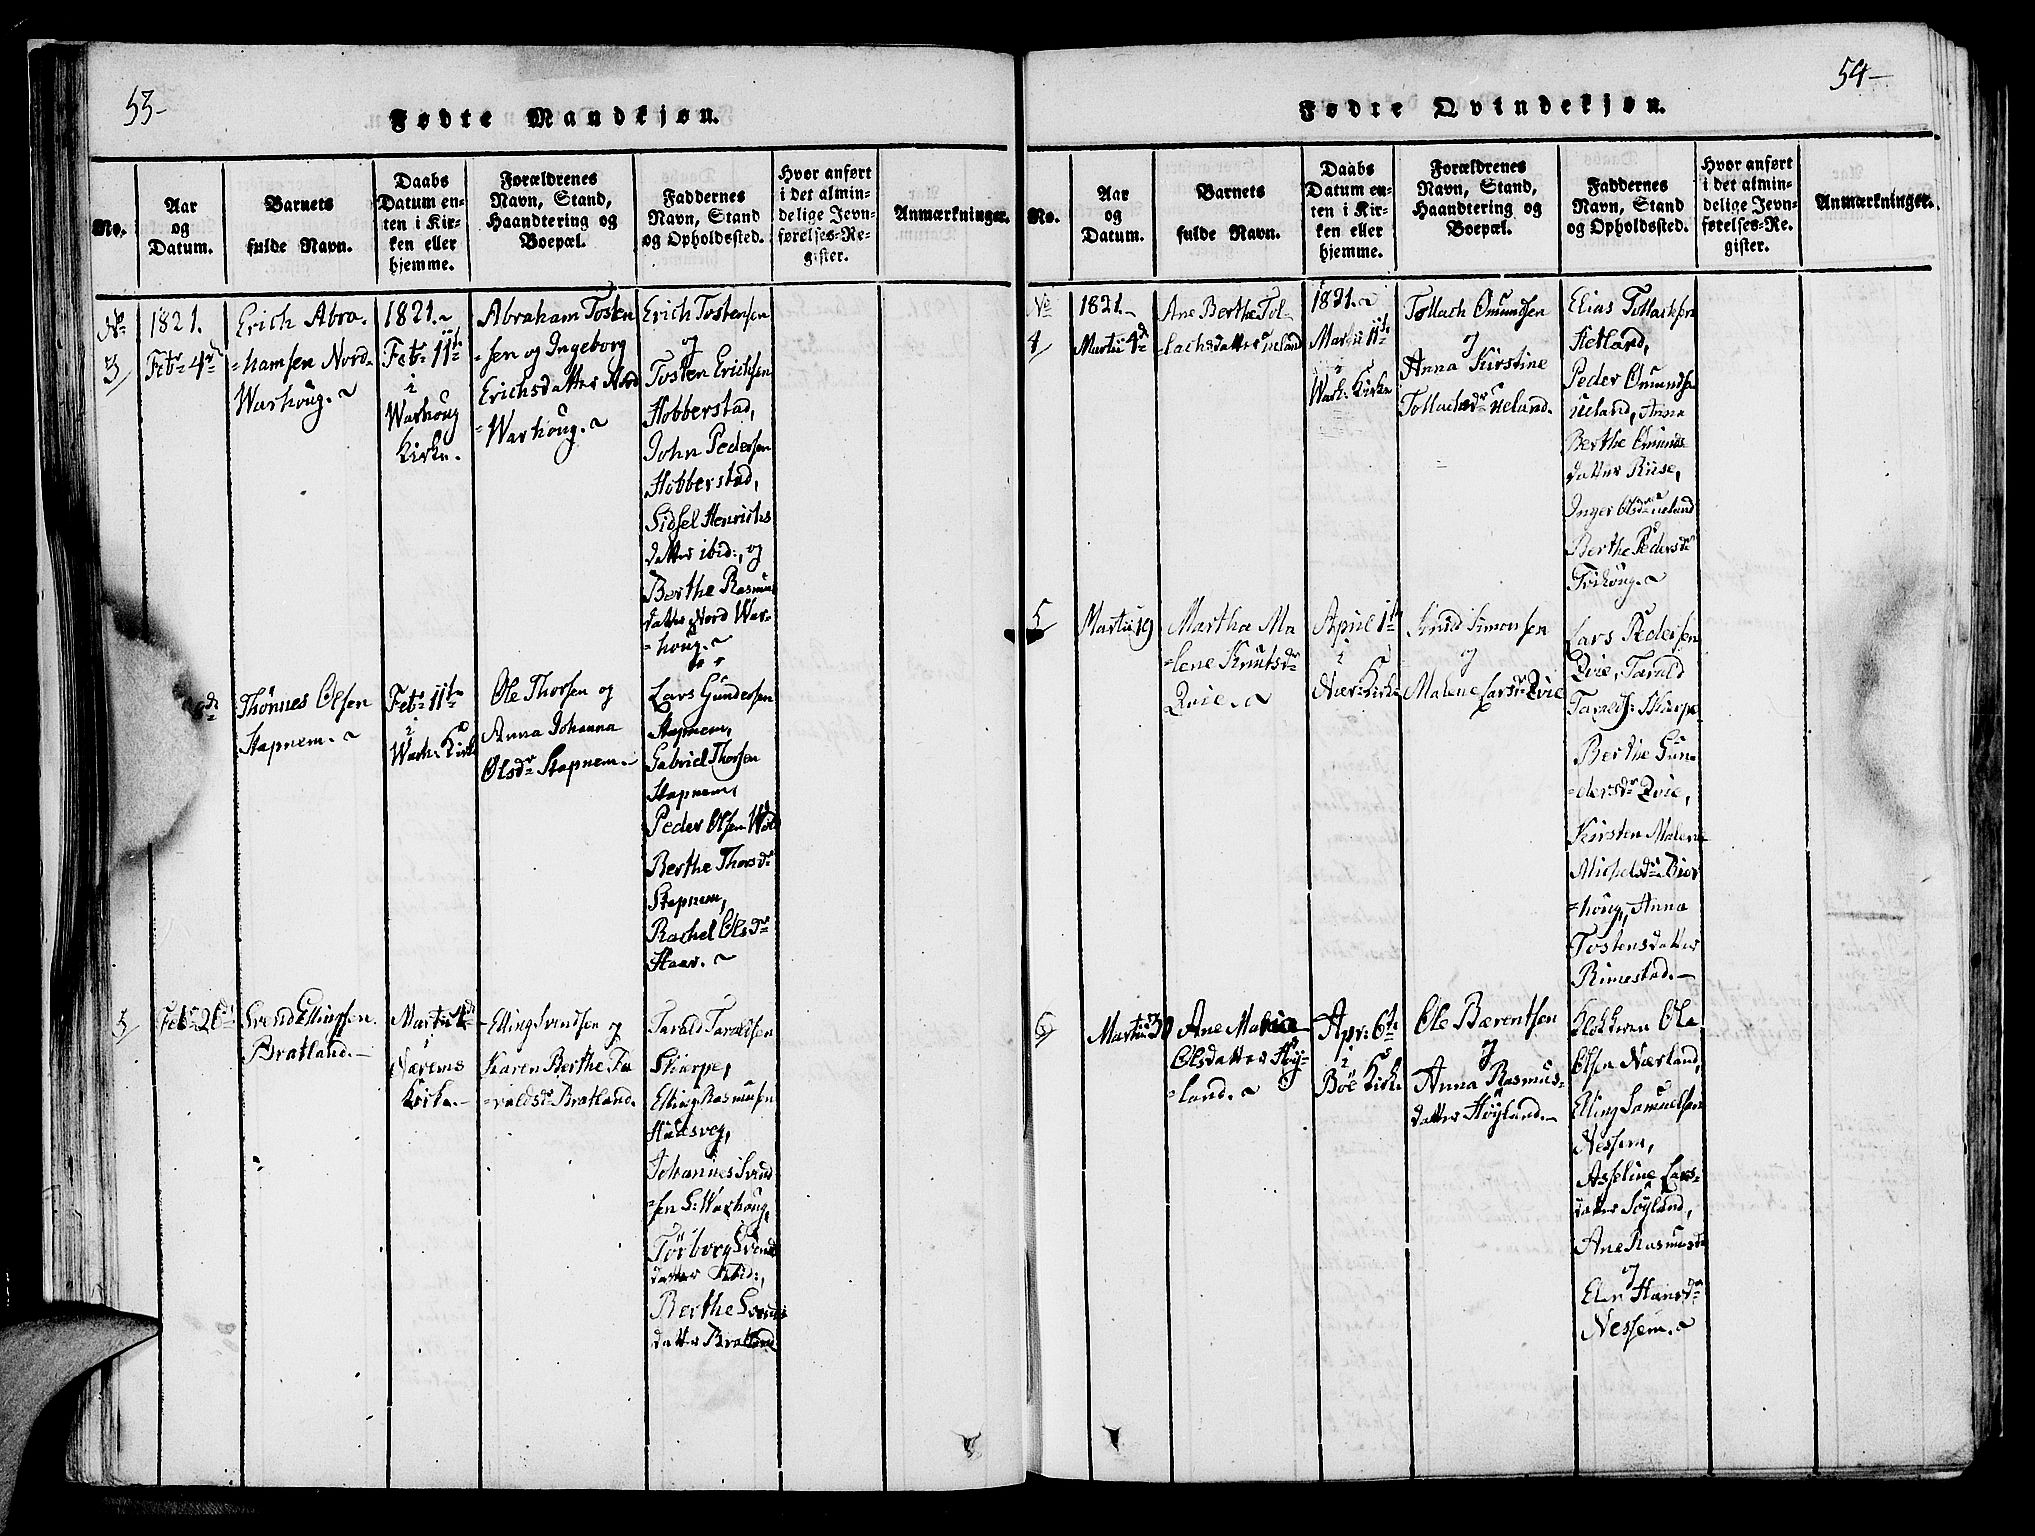 53-
Fødte Mandkjøn.
No.
Aar
og
Datum.
Barnets
fulde Navn.
Daabs
Datum en-
ten i Kir-
ken eller
hjemme.
Forældrenes
Navn, Stand,
Haandtering og
Boepæl.
Faddernes
Navn, Stand
og Opholdssted.
Hvor anført
i det almin-
delige Jevn-
førelses-Re-
gister.
Anmærkninger.
No
3
1821.
Febr 4de
Erich Abra-
=hamsen Nord-
Warhoug.
1821.
Febr 11te
i
Warhoug
Kirke.
Abraham Tosten
=sen og Ingeborg
Erichsdatter Nord
=Warhoug.
Erich Tostensen
og
Tosten Erichsen
Hobberstad,
John Pedersen
Hobberstad,
Sidsel Henrichs
datter ibid:, og
Berthe Rasmus
datter Nord War-
=houg.
Thönnes Olsen
Stapnem.
Febr 11te
i
Warh: Kirke
Ole Thorsen og
Anna Johanna
Olsdr Stapnem.
Lars Gundersen
Stapnem,
Gabriel Thorsen
Stapnem,
Peder Olsen
Berthe Thorsdr
Stapnem,
Rachel Olsdr
Haar.
5
Febr 26de
Svend Ellingsen
Bratland.
Martii
i
Nærems
Kirke.
Elling Svendsen og
Karen Berthe Ta
=raldsdr Bratland.
Tarald Taraldsen
Skierpe,
Elling Rasmusen
Haasveg,
Johannes Svend
=sen S: Warhoug,
Törborg Svends
datter ibid:,
Berthe Svends
datter Bratland
54-
Fødte Qvindekjøn.
No.
Aar
og
Datum.
Barnets
fulde Navn.
Daabs
Datum en-
ten i Kir-
ken eller
hjemme.
Forældrenes
Navn, Stand,
Haandtering og
Boepæl.
Faddernes
Navn, Stand
og Opholdssted.
Hvor anført
i det almin-
delige Jevn-
førelses-Re-
gister.
Anmærkninger.
No
4
1821.
Martii 4de
Ane Berthe Tol-
=lachsdatter Ueland
1821.
Martii 11te
i
Warh: Kirke
Tollach Omundsen
og
Anna Kirstine
Tollachsdr Ueland.
Elias Tollachsen
Hetland,
Peder Omundsen
Ueland, Anna
Berthe Omunds
datter Ruse,
Inger Olsdr Ueland
Berthe Pedersdr
Tvihoug.
5
Martii 19
Martha Ma
=lene Knutsdr
Qvie.
April 1te
i
Nær: Kirke
Knud Simonsen
og
Malene Larsdr Qvie
Lars Pedersen
Qvie, Tarald
Taralds: Skierpe
Berthe Gun
=dersdr Qvie,
Kirsten Malene
Michelsdr Bior
=houg, Anna
Tostensdatter
Rimestad.
6
Martii 30
Ane Malene
Olsdatter Höy-
=land.
Apr: 6te
i
Böe Kirke
Ole Bærentsen
og
Anna Rasmus-
datter Höyland.
Klokkeren Ole
Olsen Nærland,
Elling Samuelsen
Nessem,
Asseline Lars-
datter Söyland,
Ane Rasmusdr
og
Elen Hansdr
Nessem.